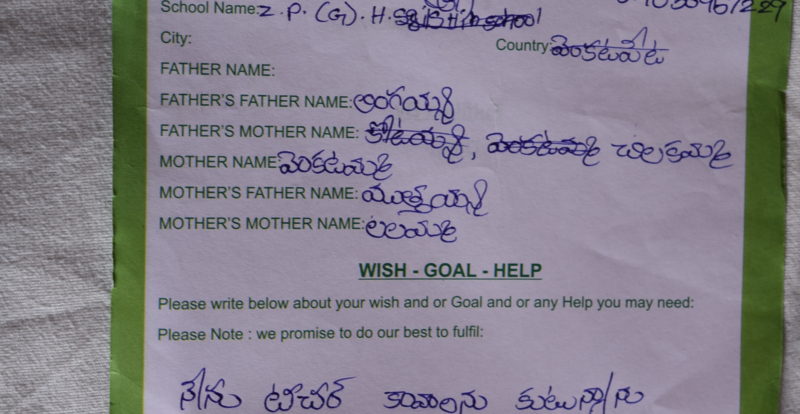 School Name: Z.P.(G).H.
City:
Country: వెంకటాపేట
FATHER NAME:
FATHER'S FATHER NAME: లింగయ్య
FATHER'S MOTHER NAME: చిలకమ్మ
MOTHER NAME వెంకటమ్మ
MOTHER'S FATHER NAME: ముత్తయ్య
MOTHER'S MOTHER NAME: లలమ్మ
WISH - GOAL - HELP
Please write below about your wish and or Goal and or any Help you may need:
Please Note : we promise to do our best to fulfil:
నేను టీచర్ కావాలను కుటున్నాను